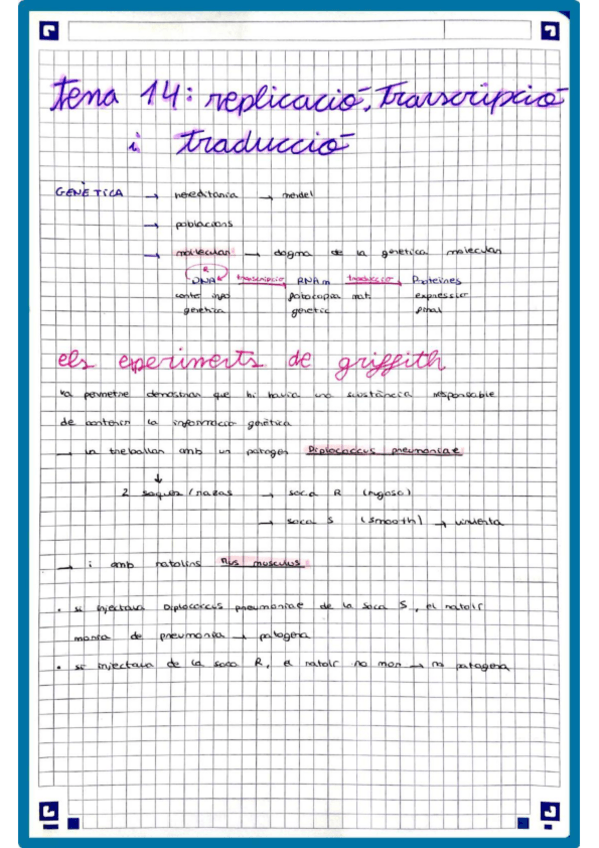 Tema 14: replicació, Transcripció
i traducció
GENÈTICA → hereditaria → mendel
→ poblacions
→ molecular → dogma de la genetica molecular
R
DNA transcripció RNAm traducció Proteïnes
conté info fotocopia mat. expressió
genetica genetic final
els experiments de griffith
Va permetre demostrar que hi havia una substància responsable
de contenir la informacio genètica
→ va treballar amb un patogen Diplococcus pneumoniae
↓
2 soques/razas → soca R (rugosa)
→ soca S (smooth) → virulenta
→ i amb ratolins Mus musculus
• si injectava Diplococcus pneumoniae de la soca S, el ratolí
moria de pneumonia → patogena
• si injectava de la soca R, el ratolí no mor → no patogena